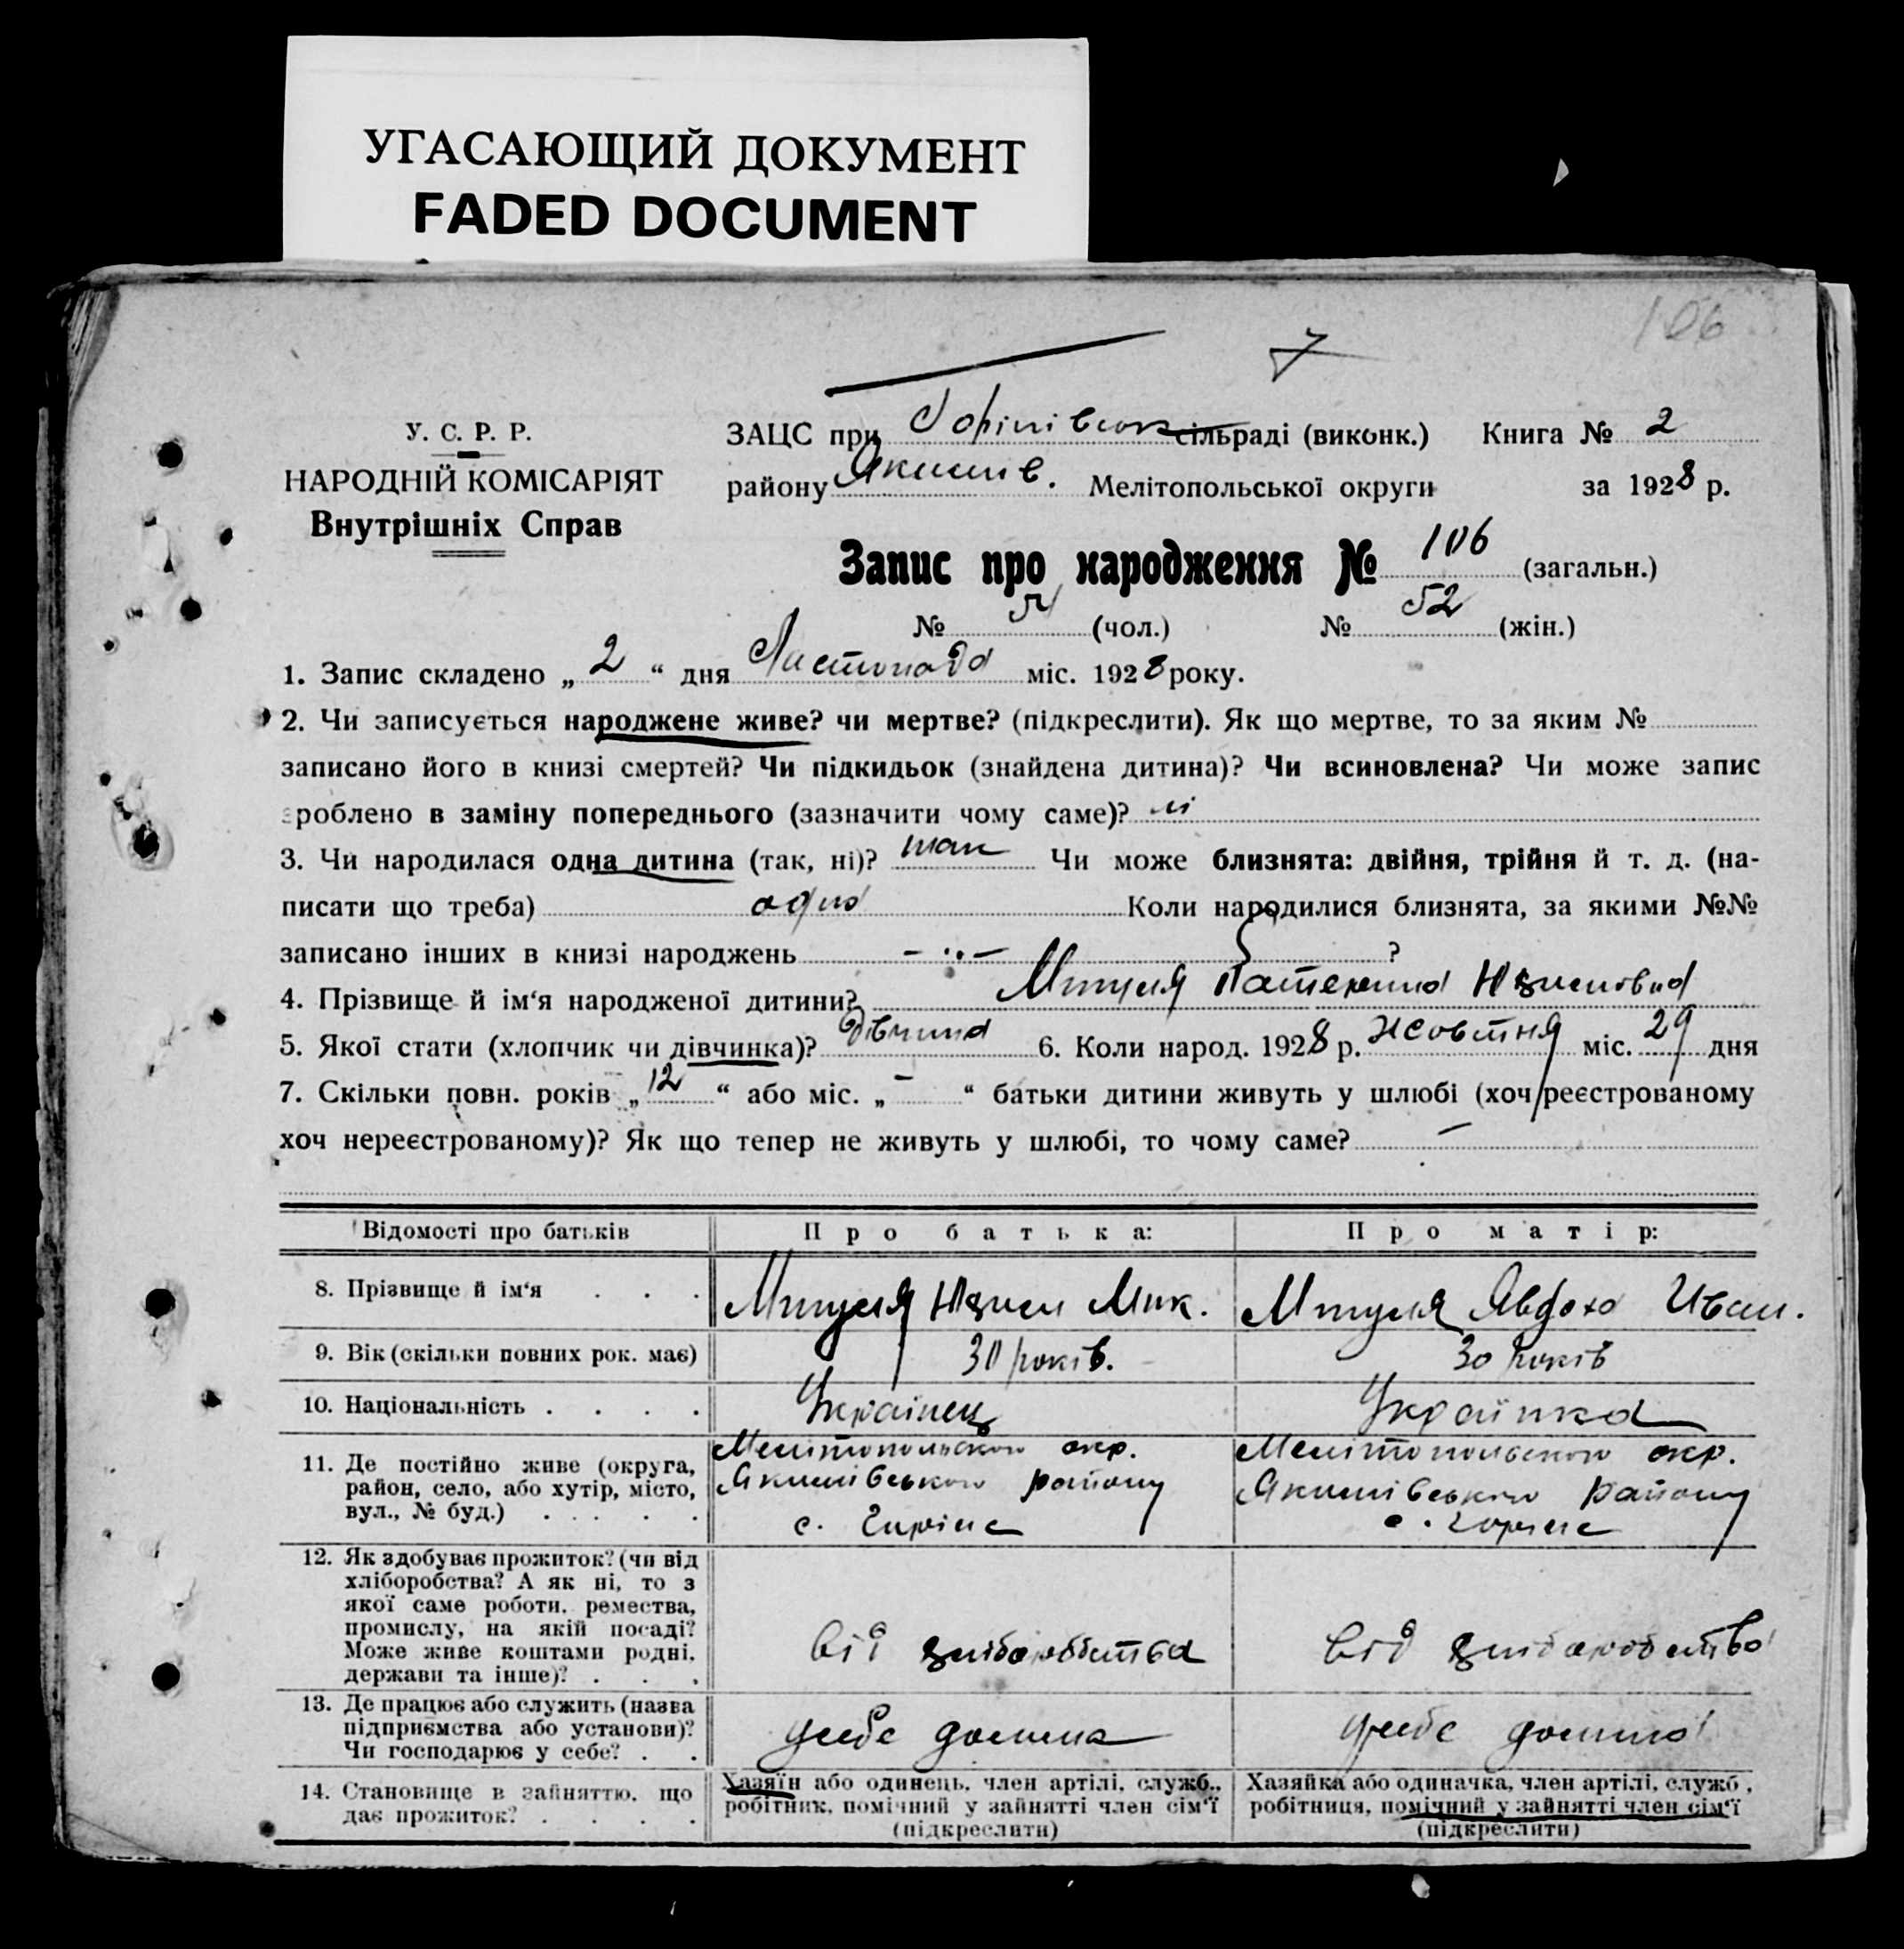 УГАСАЮЩИЙ ДОКУМЕНТ
FADED DOCUMENT
106
7
У. С. Р. Р.
НАРОДНІЙ КОМІСАРІЯТ
Внутрішніх Справ
ЗАЦС при сільраді (виконк.) Книга № 2
району Якимів. Мелітопольської округи за 1928 р.
Запис про народження № 106 (загальн.)
№ 54 (чол.) № 52 (жін.)
1. Запис складено „ 2 “ дня Листопада міс. 1928 року.
2. Чи записується народжене живе? чи мертве? (підкреслити). Як що мертве, то за яким №
записано його в книзі смертей? Чи підкидьок (знайдена дитина)? Чи всиновлена? Чи може запис
зроблено в заміну попереднього (зазначити чому саме)? ні
3. Чи народилася одна дитина (так, ні)? так Чи може близнята: двійня, трійня й т. д. (на-
писати що треба) одна Коли народилися близнята, за якими №№
записано інших в книзі народжень - „ - ?
4. Прізвище й ім'я народженої дитини?
5. Якої стати (хлопчик чи дівчинка)? дівчина 6. Коли народ. 1928 р. Жовтня міс. 29 дня
7. Скільки повн. років „ 12 “ або міс. „ - “ батьки дитини живуть у шлюбі (хоч реєстрованому
хоч нереєстрованому)? Як що тепер не живуть у шлюбі, то чому саме? -
Відомості про батьків Про батька: Про матір:
8. Прізвище й ім'я . . . Мик. Явдоха Иван.
9. Вік (скільки повних рок. має) 30 років. 30 років
10. Національність . . . . Українець Українка
11. Де постійно живе (округа, Мелітопольского окр. Мелітопольского окр.
район, село, або хутір, місто, Якимівського району Якимівського району
вул., № буд.) . . . . . с. с.
12. Як здобуває прожиток? (чи від
хліборобства? А як ні, то з
якої саме роботи, ремества,
промислу, на якій посаді?
Може живе коштами родні, від хліборобства від хліборобства
держави та інше)? . . .
13. Де працює або служить (назва
підприємства або установи)? у себе дома у себе дома
Чи господарює у себе? . .
14. Становище в зайняттю, що Хазяїн або одинець, член артілі, служб., Хазяйка або одиначка, член артілі, служб.,
дає прожиток? . . . . робітник, помічний у зайнятті член сім'ї робітниця, помічний у зайнятті член сім'ї
(підкреслити) (підкреслити)